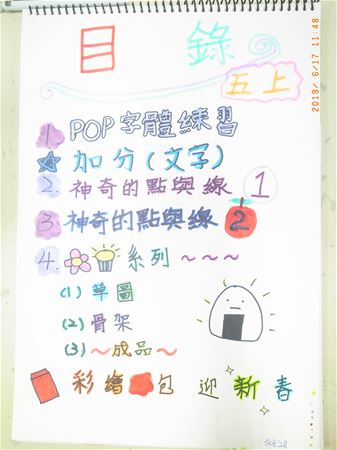 2019/ 6/17 11:48
目錄
五上
1. POP字體練習
加分(文字)
2. 神奇的點與線 1
3. 神奇的點與線 2
4. 系列~~~
(1) 草圖
(2) 骨架
(3) ~成品~
彩繪包 迎新春
50828